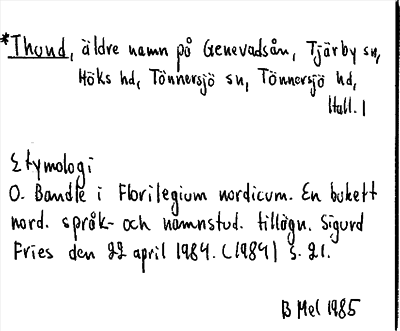 *Thund, äldre namn på Genevadsån, Tjärby sn,
Höks hd, Tönnersjö sn, Tönnersjö hd,
Hall.
Etymologi
O. Bandle i Florilegium nordicum. En bukett
nord. språk- och namnstud. tillägn. Sigurd
Fries den 22 april 1984. (1984) S. 21.
B Mel 1985